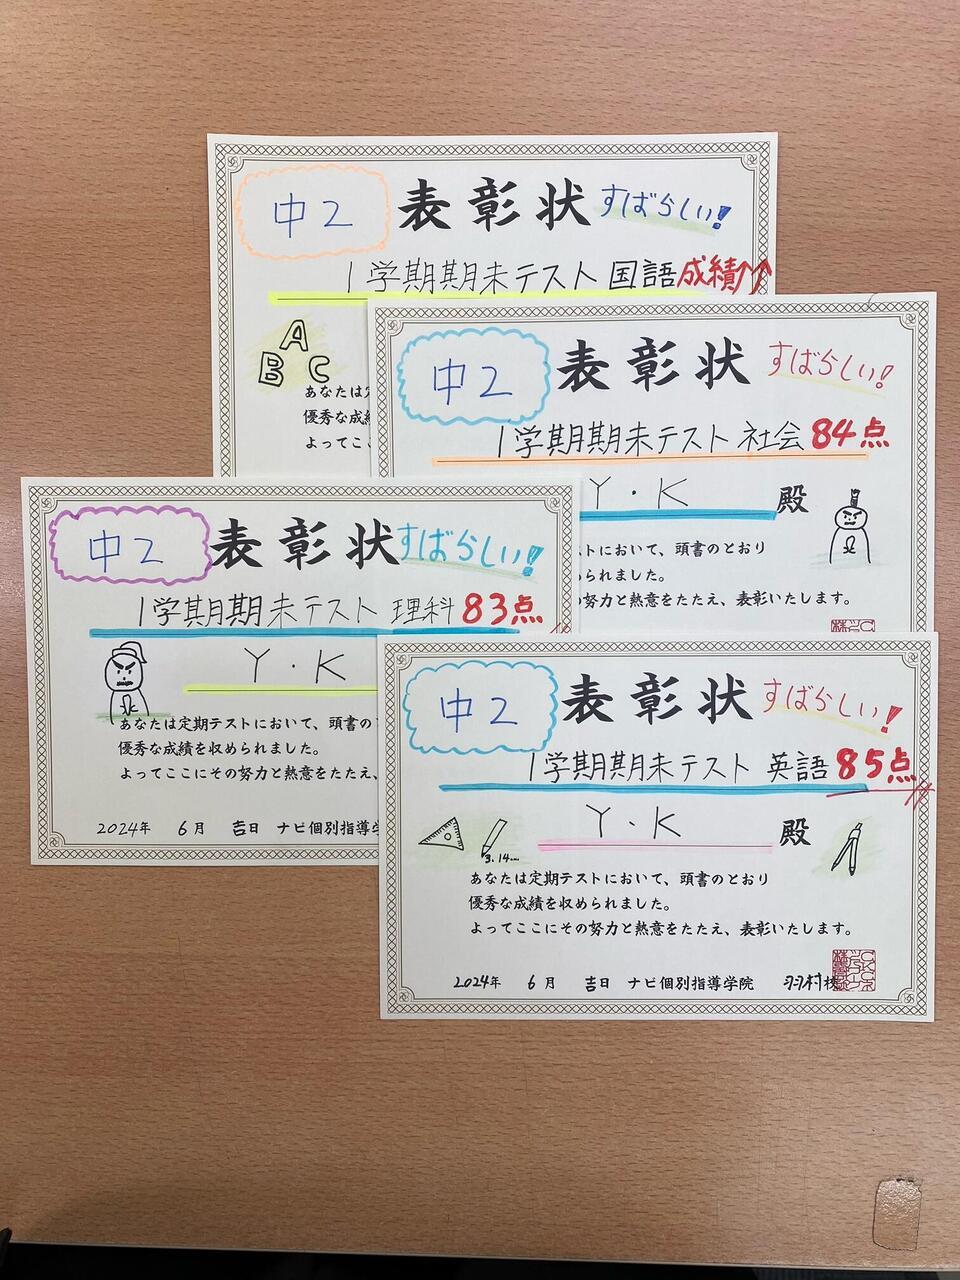 中2
表彰状
すばらしい!
1学期期末テスト 国語 成績↑↑
A
B C
あなたは
優秀な成績
よってここ
中2
表彰状
すばらしい!
1学期期末テスト 社会 84点
Y・K 殿
テストにおいて、頭書のとおり
められました。
の努力と熱意をたたえ、表彰いたします。
中2
表彰状
すばらしい!
1学期期末テスト 理科 83点
Y・K
あなたは定期テストにおいて、頭書の
優秀な成績を収められました。
よってここにその努力と熱意をたたえ、
2024年 6月 吉日 ナビ個別指導学
中2
表彰状
すばらしい!
1学期期末テスト 英語 85点
Y・K 殿
3.14
あなたは定期テストにおいて、頭書のとおり
優秀な成績を収められました。
よってここにその努力と熱意をたたえ、表彰いたします。
2024年 6月 吉日 ナビ個別指導学院 羽村校